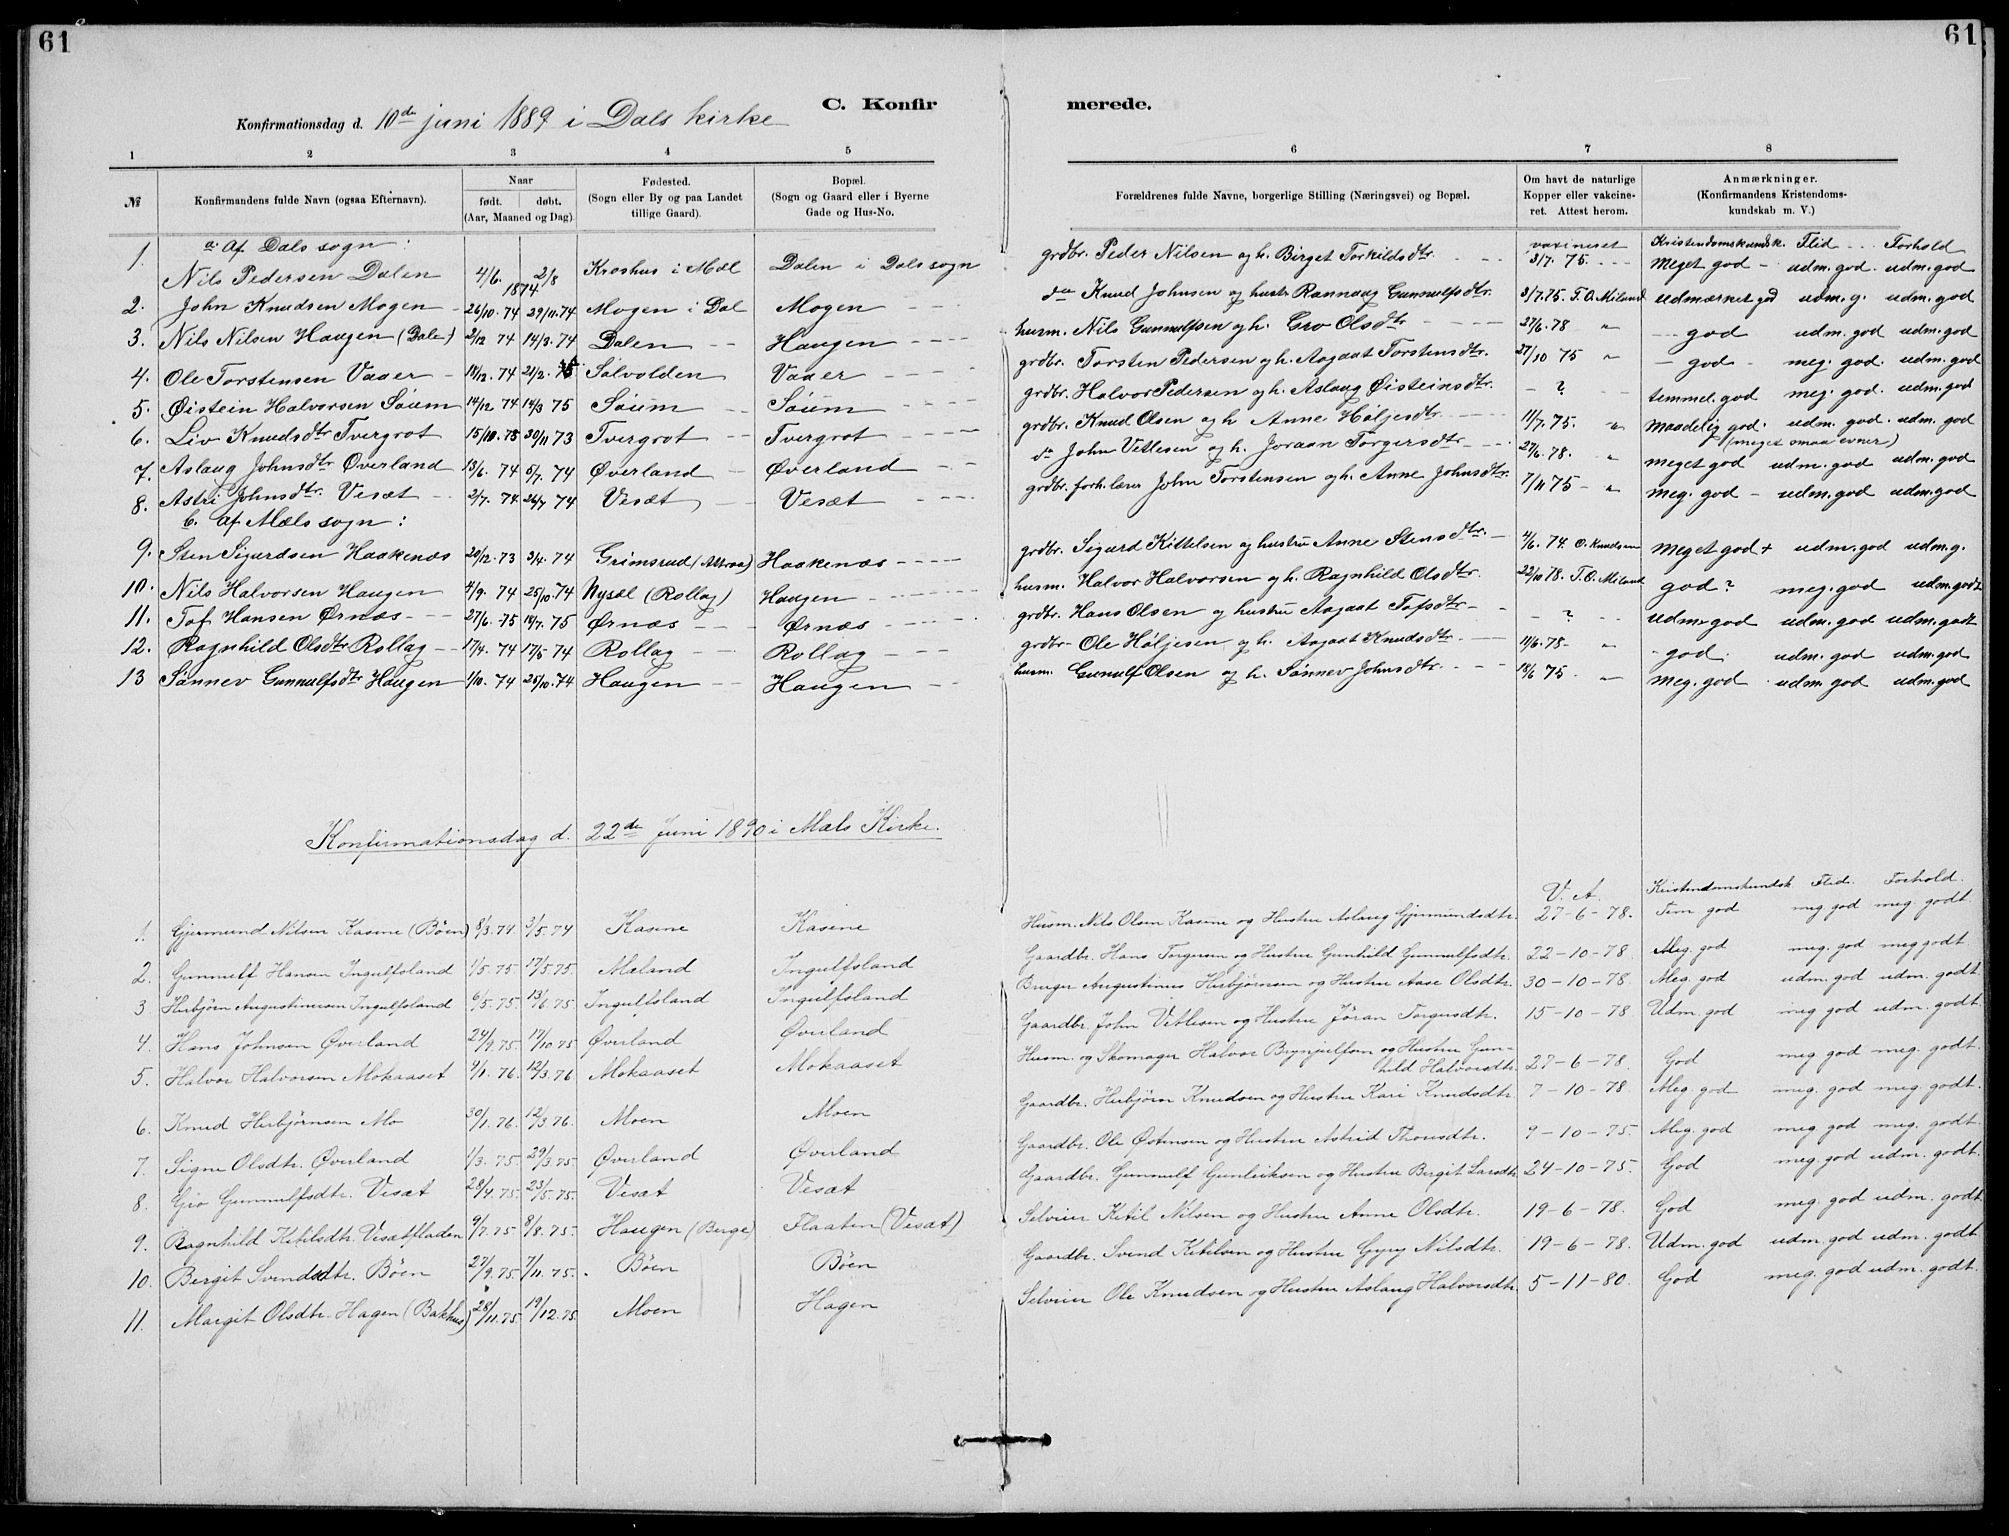 61
61
C. Konfirmerede.
Konfirmationsdag d. 10de juni 1889 i Dals kirke
1 2 3 4 5 6 7 8
№ Konfirmandens fulde Navn (ogsaa Efternavn). Naar født. døbt. (Aar, Maaned og Dag). Fødested. (Sogn eller By og paa Landet tillige Gaard). Bopæl. (Sogn og Gaard eller i Byerne Gade og Hus-No. Forældrenes fulde Navne, borgerlige Stilling (Næringsvei) og Bopæl. Om havt de naturlige Kopper eller vakcineret. Attest herom. Anmærkninger. (Konfirmandens Kristendomskundskab m. V.)
a. Af Dals sogn: vaxineret Kristendomskundsk. Flid Forhold
1. Nils Pedersen Dalen 4/6. 2/8 1874 Kroshus i Mæl Dalen i Dals sogn grdbr. Peder Nilsen og h. Birget Torkildsdtr. 3/7. 75. meget god - udm. god. udm. god
2. John Knudsen Mogen 26/10. 74 29/11. 74 Mogen i Dal Mogen do Knud Johnsen og hustr. Rannaug Gunnulfsdtr. 3/7. 75. T. O. Miland udmærket god udm. g. udm. god
3. Nils Nilsen Haugen (Dalen) 2/12 74 14/3. 74 Dalen Haugen husm. Nils Gunnulfsen og h. Gro Olsdtr 27/6. 78 " god udm. god udm. god
4. Ole Torstensen Vaaer 18/12. 74 21/2. 75 Solvolden Vaaer grdbr. Torsten Pedersen og h. Aagaat Torstensdtr. 27/10 75 " god meg. god. udm. god
5. Øistein Halvorsen Søum 14/12 74 14/3 75 Søum Søum grdbr. Halvor Pedersen og h. Aslaug Øisteinsdtr. - ? temmel. god meg. god. udm. god
6. Liv Knudsdtr Tvergrot 15/10. 73 30/11 73 Tvergrot Tvergrot grdbr. Knud Olsen og h Anne Høljesdtr. 11/7. 75. " maadelig god. udm. god. udm. god (meget smaa evner)
7. Aslaug Johnsdtr Øverland 13/6. 74 5/7. 74 Øverland Øverland do John Vetlesen og h. Joraan Torgersdtr 27/6. 78. " meget god udm. god udm. god
8. Astri Johnsdtr. Vesæt 2/7. 74. 26/7 74 Vesæt Vesæt grdbr. forh. lærer John Torstensen og h. Anne Johnsdtr. 7/11 75 - " meg. god - udm. god udm. god
b. Af Mæls sogn:
9. Sten Sigurdsen Haakenæs 20/12. 73 3/4. 74 Grimsrud (Attraa) Haakenæs grdbr. Sigurd Kittelsen og hustru Anne Stensdtr. 4/6. 74. O. Knudsen meget god + udm. god udm. g.
10. Nils Halvorsen Haugen 4/9. 74 25/10. 74 Nysæl (Rollag) Haugen husm. Halvor Halvorsen og h. Ragnhild Olsdtr. 22/10 78. T. O. Miland god? meg. god udm. godt
11. Tof Hansen Ørnæs 27/6. 75 14/7. 75 Ørnæs Ørnæs grdbr. Hans Olsen og hustru Aagaat Tofsdtr - ? udm. god udm. god udm. godt
12. Ragnhild Olsdtr Rollag 17/4. 74 17/5 74 Rollag Rollag grdbr Ole Høljesen og h. Aagaat Knudsdtr. 11/6. 78 - " - god. udm. god udm. god
13 Sønnev Gunnulfsdtr Haugen 1/10. 74 25/10. 74 Haugen Haugen husm. Gunulf Olsen og h. Sønnev Johnsdtr. 18/6 75. " meg. god. udm. god udm. god
Konfirmationsdag d. 22de Juni 1890 i Mæls Kirke.
V. A. Kristendomskundsk Flid. Forhold.
1. Gjermund Nilsen Kasine (Bøen) 8/3. 74. 3/5. 74 Kasine Kasine Husm. Nils Olsen Kasine og Hustru Aslaug Gjermundsdtr. 27-6-78. Tem. god meg. god meg. godt.
2. Gunnulf Hansen Ingulfsland 1/5. 75. 17/5. 75. Mæland Ingulfsland Gaardbr. Hans Torgersen og Hustru Gunhild Gunnulfsdtr. 22-10-78. Meg. god meg. god meg godt
3 Herbjørn Augustinusen Ingulfsland 6/5. 75. 13/6. 75. Ingulfsland Ingulfsland Bruger Augustinus Herbjørnsen og Hustru Aase Olsdtr. 30-10-78. Meg. god udm. god udm. godt.
4. Hans Johnsen Øverland 24/9. 75. 17/10. 75 Øverland Øverland Gaardbr. John Vetlesen og Hustru Jøran Torgersdtr. 15-10-78 Udm. god meg god udm. godt.
5. Halvor Halvorsen Mokaaset 4/1. 76. 12/3. 76 Mokaaset Mokaaset Husm. og Skomager Halvor Brynjulfsen og Hustru Gunhild Halvorsdtr. 27-6-78. God meg god meg. godt.
6. Knud Herbjørnsen Mo 30/1. 76. 12/3. 76. Moen Moen Gaardbr. Herbjørn Knudsen og Hustru Kari Knudsdtr. 7-10-78 Meg. god meg. god meg. godt.
7. Signe Olsdtr. Øverland 1/3. 75. 29/3. 75 Øverland Øverland Gaardbr. Ole Østensen og Hustru Astrid Thorsdtr. 9-10-75. Meg. god meg god meg. godt.
8. Gro Gunnulfsdtr. Vesæt 28/4. 75. 23/5. 75. Vesæt Vesæt Gaardbr. Gunnulf Gunleiksen og Hustru Bergit Larsdtr. 24-10-75. God meg. god udm. godt.
9. Ragnhild Ketilsdtr. Vesætfladen 9/7. 75 8/8. 75. Haugen (Berge) Flaaten (Vesæt) Selveier Ketil Nilsen og Hustru Anne Olsdtr. 19-6-78. God meg. god udm. godt.
10. Bergit Svendsdtr. Bøen 27/9. 75. 7/11. 75. Bøen Bøen Gaardbr. Svend Ketilsen og Hustru Gyry Nilsdtr. 19-6-78. Udm. god udm. god udm. godt.
11. Margit Olsdtr. Hagen (Bakhus) 28/11. 75. 19/12. 75. Moen Hagen Selveier Ole Knudsen og Hustru Aslaug Halvorsdtr. 5-11-80. God meg. god udm. godt.